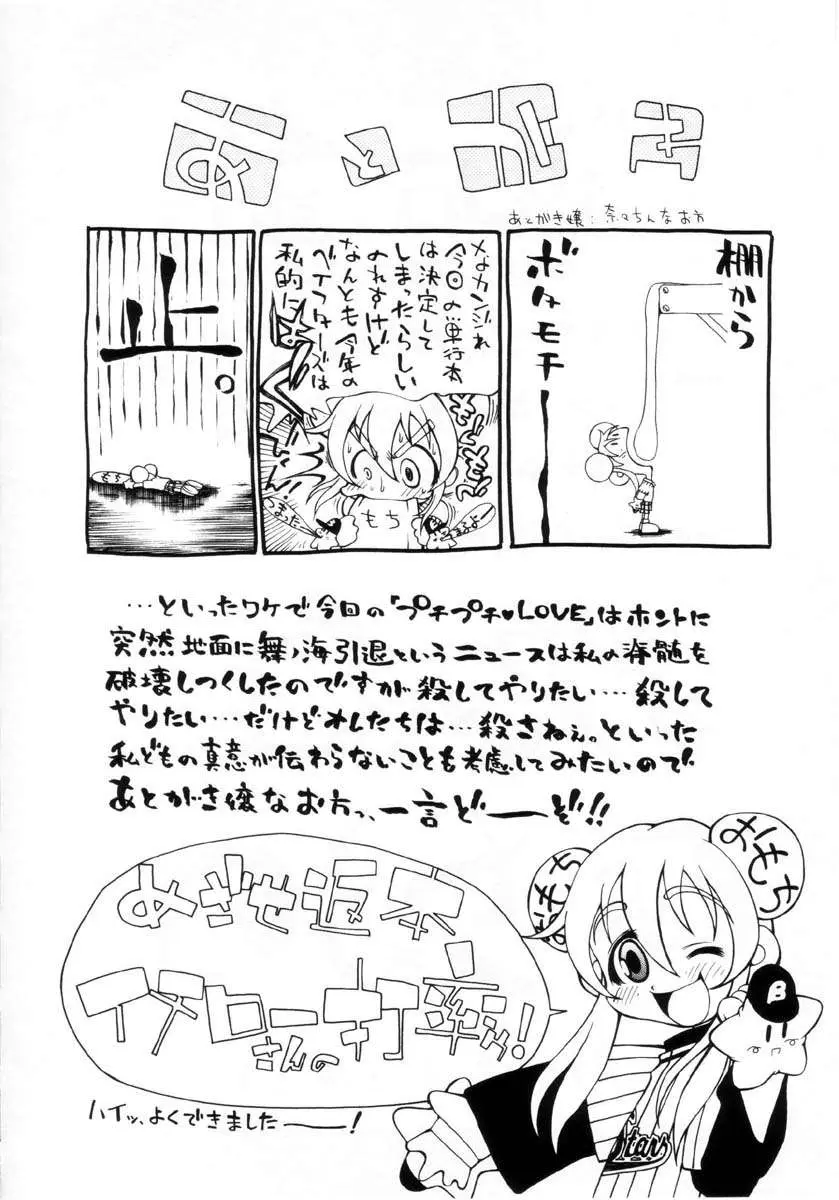 あとがき
あとがき嬢：奈々ちんなお方
棚から
ボタモチーー
なカンジれ
今回の単行本
は決定して
しまったらしい
のれすけど
なんとも今年の
ベイスターズは
私的に
もち
止。
もち
…といったワケで今回の「プチプチ♥LOVE」はホントに
突然地面に舞ノ海引退というニュースは私の脊髄を
破壊しつくしたのですが殺してやりたい…殺して
やりたい…だけどオレたちは…殺さねぇ。といった
私どもの真意が伝わらないことも考慮してみたいので
あとがき嬢なお方っ、一言どーーぞ!!
めざせ返本
イチローさんの打率っ!
おもち
おもち
B
Stars
ハイッ、よくできましたーー!